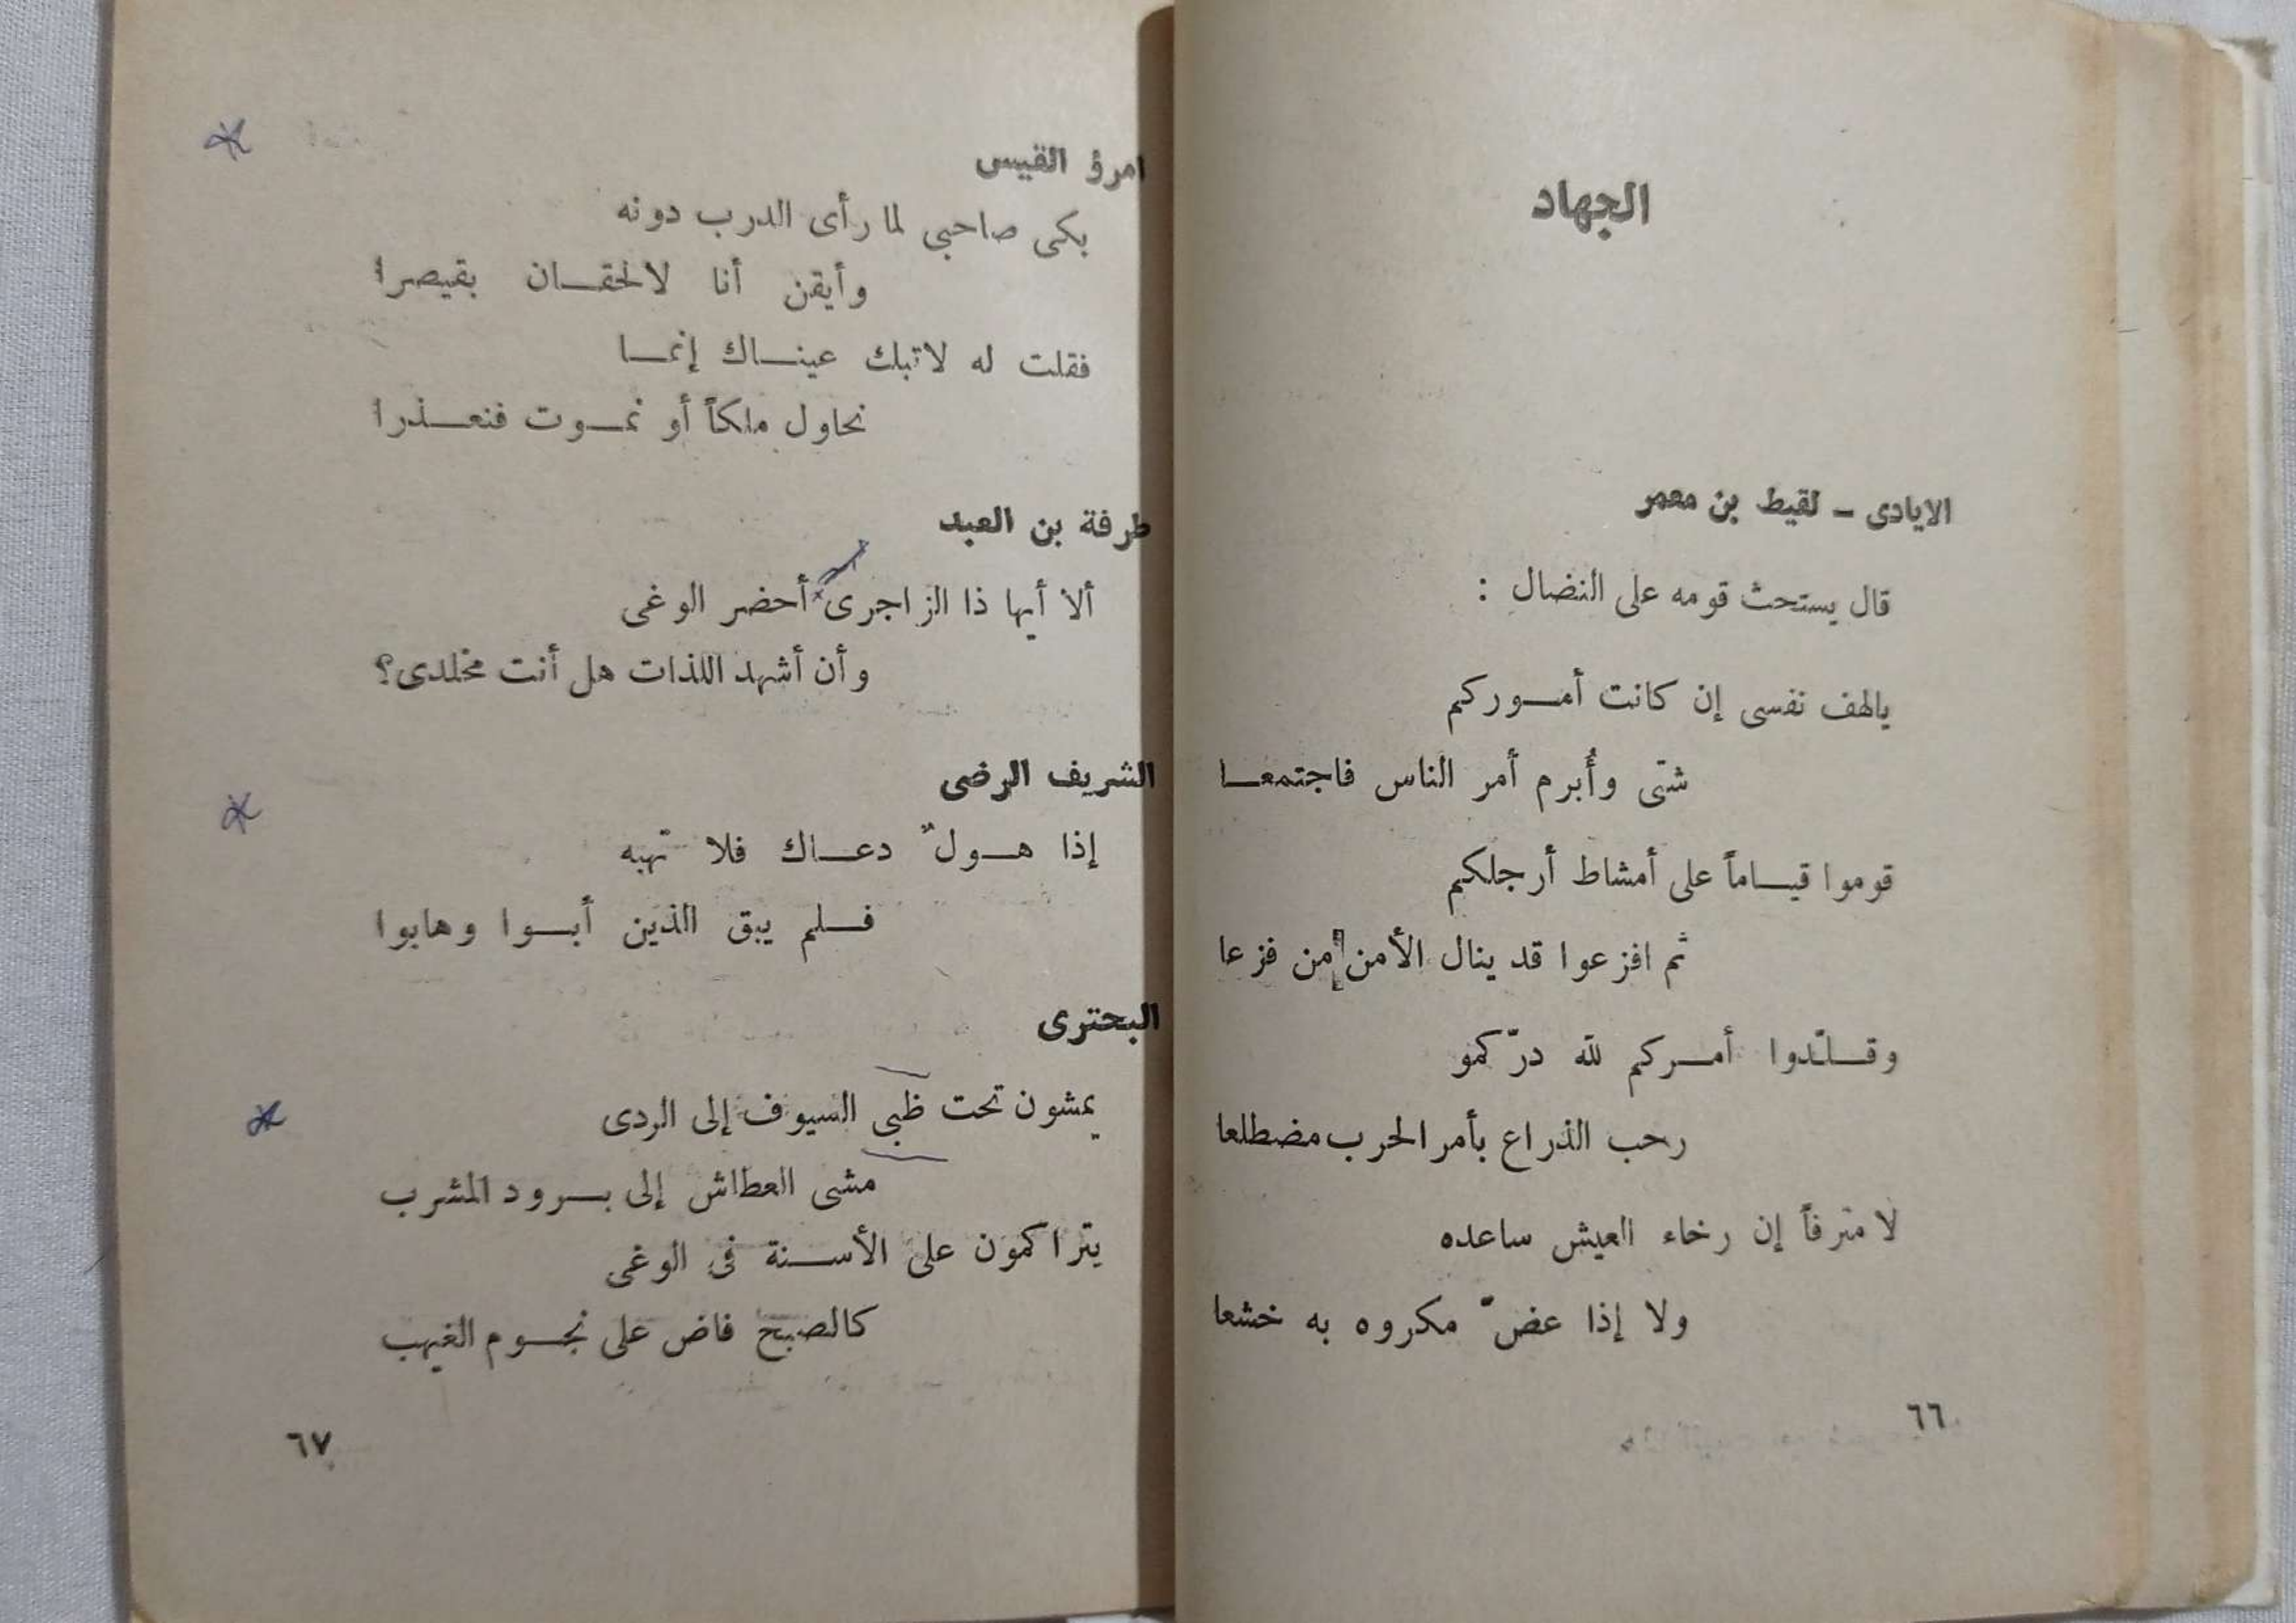 الجهاد
الايادى – لقيط بن معمر
قال يستحث قومه على النضال :
يالهف نفسى إن كانت أمـــوركم
شتّى وأُبرم أمر الناس فاجتمعــا
قوموا قيــاماً على أمشاط أرجلكم
ثم افزعوا قد ينال الأمن من فزعا
وقــلّدوا أمــركم لله درّكمو
رحب الذراع بأمر الحرب مضطلعا
لا مترفاً إن رخاء العيش ساعده
ولا إذا عضّ مكروه به خشعا
٦٦
امرؤ القيس
بكى صاحبي لما رأى الدرب دونه
وأيقن أنا لاحقــان بقيصرا
فقلت له لاتبك عينــاك إنمــا
نحاول ملكاً أو نمــوت فنعــذرا
طرفة بن العبد
ألا أيها ذا الزاجرى أحضر الوغى
وأن أشهد اللذات هل أنت مخلدى؟
الشريف الرضى
إذا هــولٌ دعــاك فلا تهبه
فــلم يبق الذين أبــوا وهابوا
البحترى
يمشون تحت ظبي السيوف إلى الردى
مشى العطاش إلى بــرود المشرب
يتراكمون على الأســنة فى الوغى
كالصبح فاض على نجــوم الغيهب
٦٧